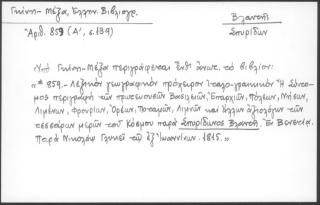 Γκίνη - Μέξα, Ελλην. Βιβλιογρ.
Ἀριθ. 859 (Α', σ. 139)
Βλαντῆ
Σπυρίδων
Ὑπὸ Γκίνη - Μέξα περιγράφεται ἐνθ' ἀνωτ. τὸ βιβλίον:
«* 859.- Λεξικὸν γεωγραφικὸν πρόχειρον ἰταλο-γραικικὸν Ἡ Σύντο-
μος περιγραφὴ τῶν πρωτευουσῶν Βασιλειῶν, Ἐπαρχιῶν, Πόλεων, Νήσων,
Λιμένων, Φρουρίων, Ὀρέων, Ποταμῶν, Λιμνῶν καὶ ἄλλων ἀξιολόγων τῶν
τεσσάρων μερῶν τοῦ Κόσμου παρὰ Σπυρίδωνος Βλαντῆ. Ἐν Βενετίᾳ.
Παρὰ Νικολάῳ Γλυκεῖ τῷ ἐξ Ἰωαννίνων. 1815.»